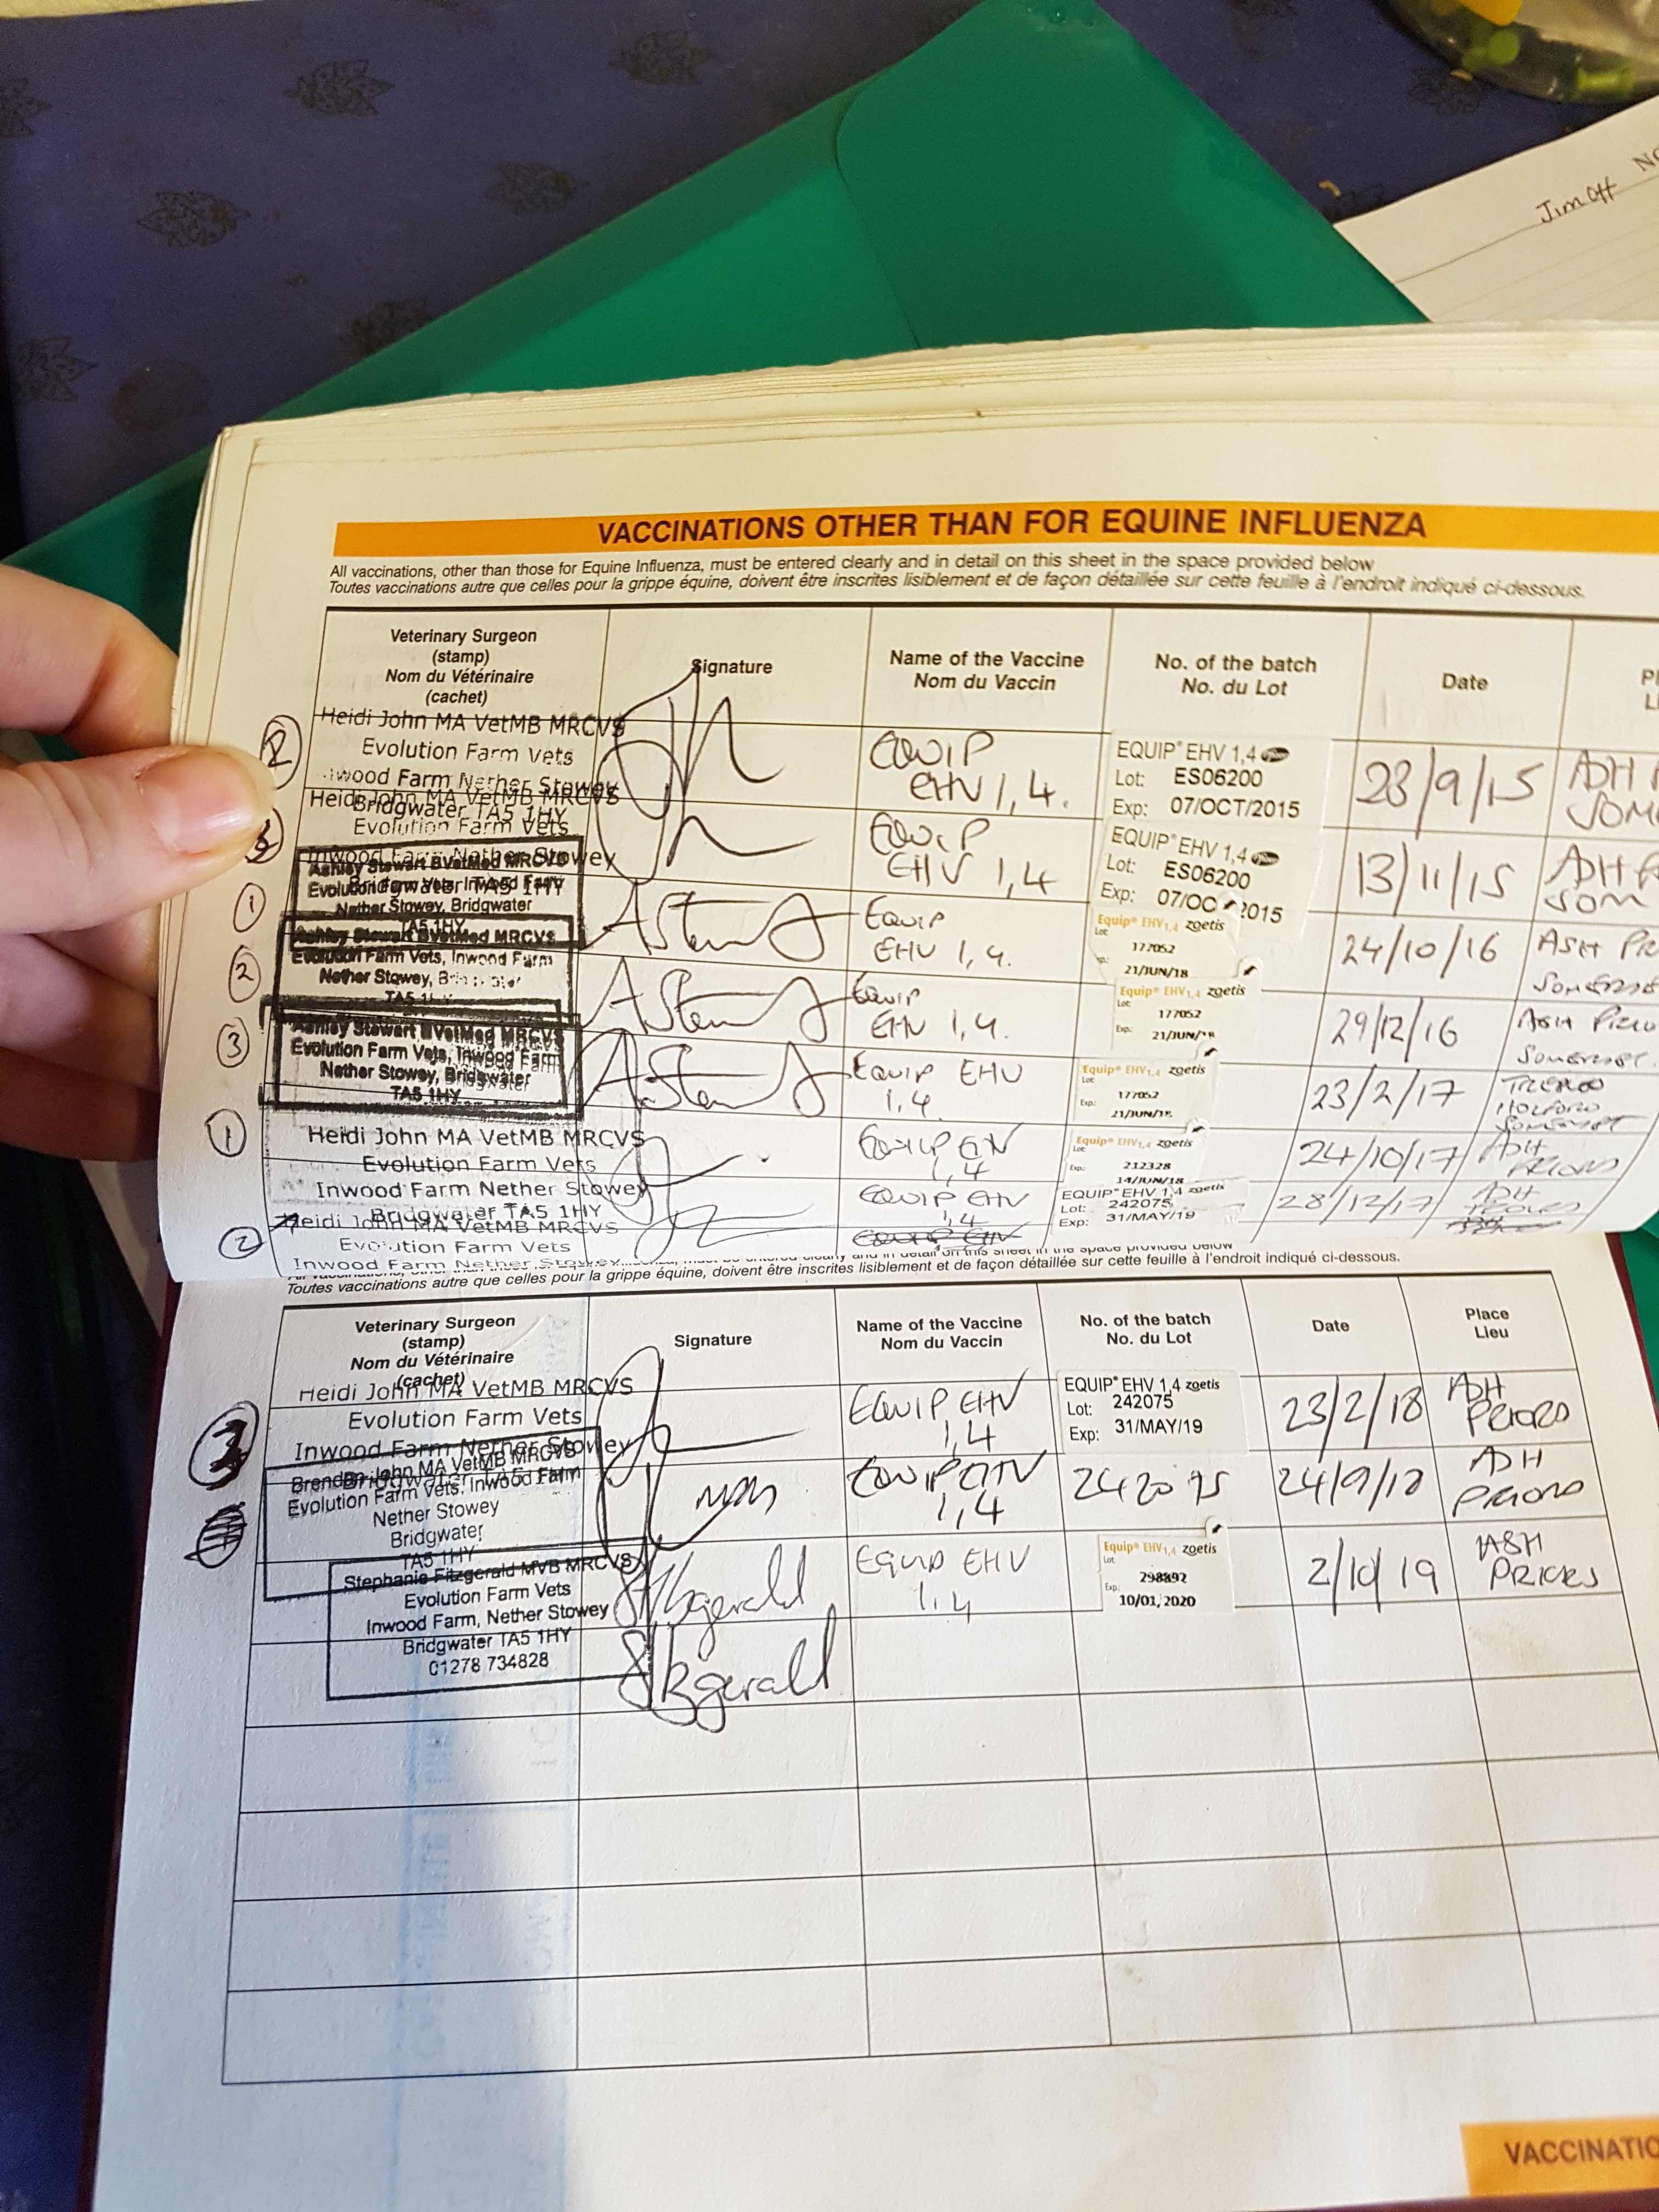 Jim Off
VACCINATIONS OTHER THAN FOR EQUINE INFLUENZA
All vaccinations, other than those for Equine Influenza, must be entered clearly and in detail on this sheet in the space provided below
Toutes vaccinations autre que celles pour la grippe équine, doivent être inscrites lisiblement et de façon détaillée sur cette feuille à l'endroit indiqué ci-dessous.
Veterinary Surgeon
(stamp)
Nom du Vétérinaire
(cachet)
Signature
Name of the Vaccine
Nom du Vaccin
No. of the batch
No. du Lot
Date
2
Heidi John MA VetMB MRCVS
Evolution Farm Vets
Inwood Farm Nether Stowey
Bridgwater TA5 1HY
EQUIP
EHV 1,4.
EQUIP EHV 1,4
Lot: ES06200
Exp: 07/OCT/2015
28/9/15
ASH
SOM
3
Heidi John MA VetMB MRCVS
Evolution Farm Vets
Inwood Farm Nether Stowey
Bridgwater TA5 1HY
EQUIP
EHV 1,4
EQUIP EHV 1,4
Lot: ES06200
Exp: 07/OC 2015
13/11/15
ASH
SOM
1
Ashley Stewart BVetMed MRCVS
Evolution Farm Vets, Inwood Farm
Nether Stowey, Bridgwater
TA5 1HY
AStewart
EQUIP
EHV 1,4.
Equip EHV1,4 zoetis
Lot:
177052
21/JUN/18
24/10/16
ASH PR
SOMERSE
2
Ashley Stewart BVetMed MRCVS
Evolution Farm Vets, Inwood Farm
Nether Stowey,
TA5
AStewart
EQUIP
EHV 1,4.
Equip EHV1,4 zoetis
Lot:
177052
Exp:
21/JUN/18
29/12/16
ASH
SOMERSET.
3
Ashley Stewart BVetMed MRCVS
Evolution Farm Vets, Inwood Farm
Nether Stowey, Bridgwater
TA5 1HY
AStewart
EQUIP EHV
1,4.
Equip EHV1,4 zoetis
Lot:
177052
Exp:
21/JUN/18
23/2/17
HOLFORD
SOMERSET
1
Heidi John MA VetMB MRCVS
Evolution Farm Vets
Inwood Farm Nether Stowey
Bridgwater TA5 1HY
EQUIP EHV
1,4
Equip EHV1,4 zoetis
Lot:
212328
Exp:
14/JUN/18
24/10/17
ASH
PRIORS
2
Heidi John MA VetMB MRCVS
Evolution Farm Vets
Inwood Farm Nether Stowey
EQUIP EHV
1,4
EQUIP EHV 1,4 zoetis
Lot: 242075
Exp: 31/MAY/19
28/12/17
ASH
PRIORS
in the space provided below
Toutes vaccinations autre que celles pour la grippe équine, doivent être inscrites lisiblement et de façon détaillée sur cette feuille à l'endroit indiqué ci-dessous.
Veterinary Surgeon
(stamp)
Nom du Vétérinaire
(cachet)
Signature
Name of the Vaccine
Nom du Vaccin
No. of the batch
No. du Lot
Date
Place
Lieu
3
Heidi John MA VetMB MRCVS
Evolution Farm Vets
Inwood Farm Nether Stowey
EQUIP EHV
1,4
EQUIP EHV 1,4 zoetis
Lot: 242075
Exp: 31/MAY/19
23/2/18
ASH
PRIORS
Brendan John MA VetMB MRCVS
Evolution Farm Vets, Inwood Farm
Nether Stowey
Bridgwater
TA5 1HY
EQUIP EHV
1,4
242075
24/9/18
ASH
PRIORS
Stephanie Fitzgerald MVB MRCVS
Evolution Farm Vets
Inwood Farm, Nether Stowey
Bridgwater TA5 1HY
01278 734828
SFitzgerald
SFitzgerald
EQUIP EHV
1,4
Equip EHV1,4 zoetis
Lot:
298892
Exp:
10/01/2020
2/10/19
ASH
PRIORS
VACCINATIO